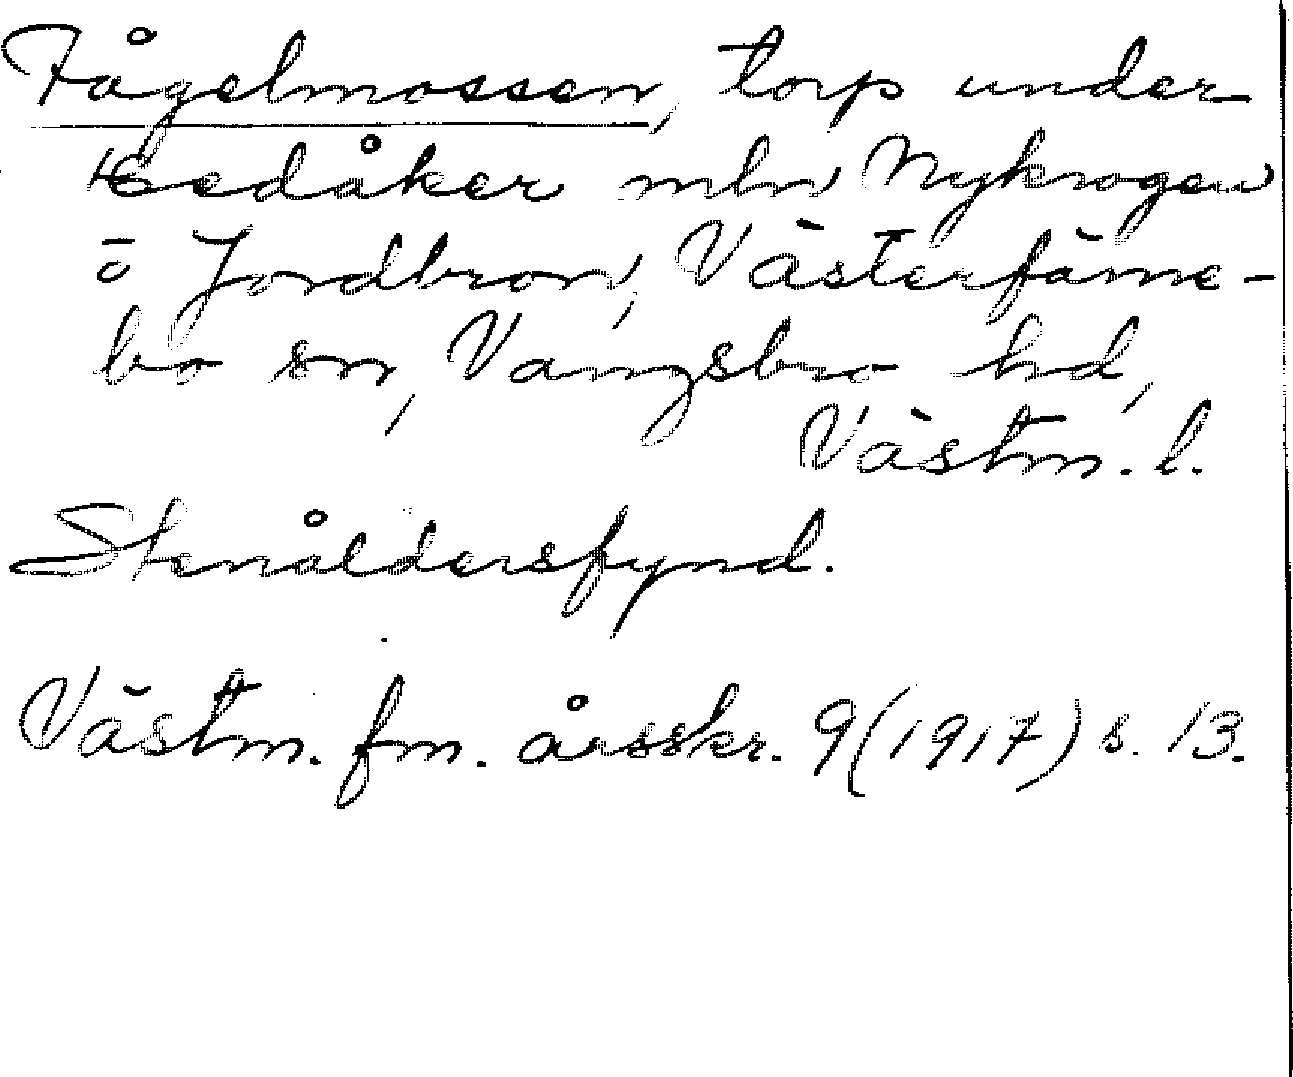 Fågelmossen, torp under
Hedåker mln Nykrogen
o Jordbron, Västerfärne-
bo sn, Vangsbro hd,
Västm. l.
Stenåldersfynd.
Västm. fm. årsskr. 9 (1917) s. 13.